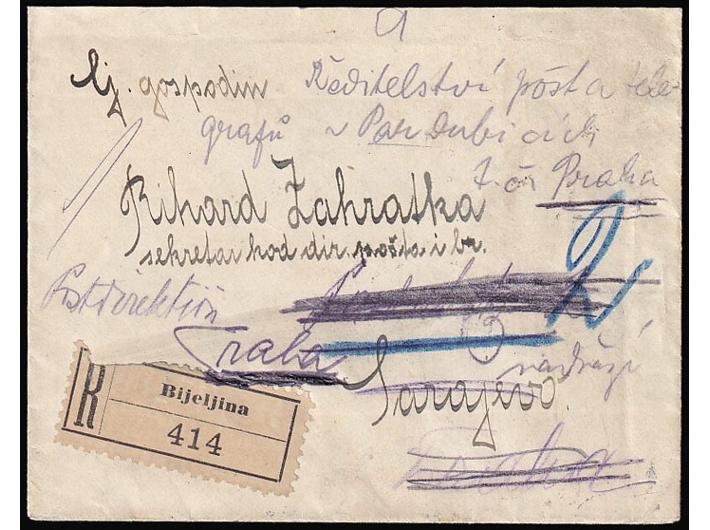 Cj. gospodin Ředitelství pošt a tele-
grafů v Pardubicích
Praha
Rihard Zahratka
sekretar kod dir. pošta i br.
Postdirektion
Praha
nádraží
Sarajevo.
R Bijeljina
414